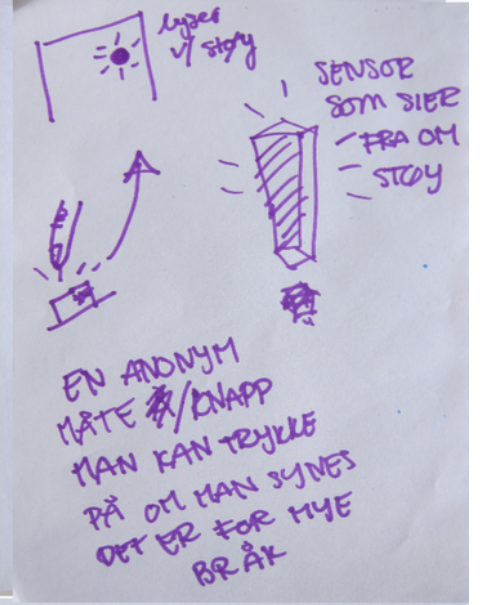 lyser
v/ støy
SENSOR
SOM SIER
FRA OM
STØY
EN ANONYM
MÅTE /KNAPP
MAN KAN TRYKKE
PÅ OM MAN SYNES
DET ER FOR MYE
BRÅK